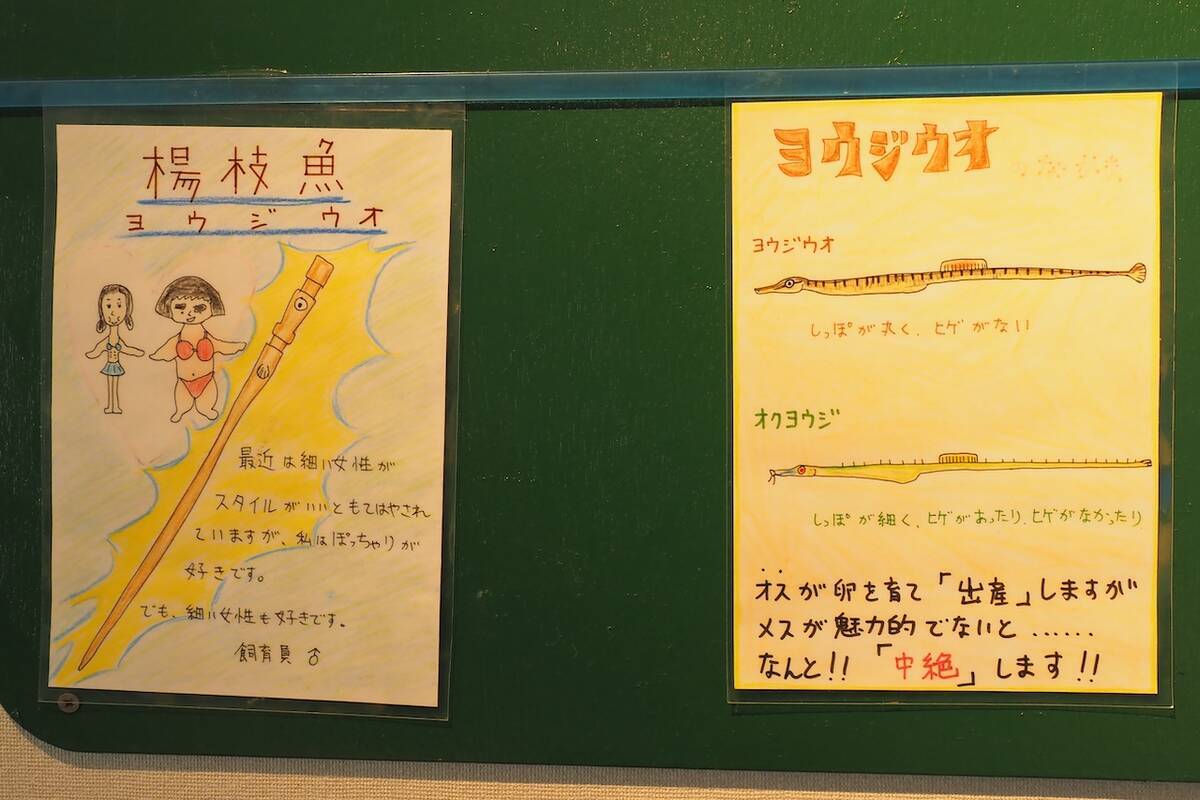 楊枝魚
ヨウジウオ
最近は細い女性が
スタイルがいいともてはやされ
ていますが、私はぽっちゃりが
好きです。
でも、細い女性も好きです。
飼育員 ♂
ヨウジウオ
ヨウジウオ
しっぽが丸く、ヒゲがない
オクヨウジ
しっぽが細く、ヒゲがあったり、ヒゲがなかったり
オスが卵を育て「出産」しますが
メスが魅力的でないと……
なんと!!「中絶」します!!